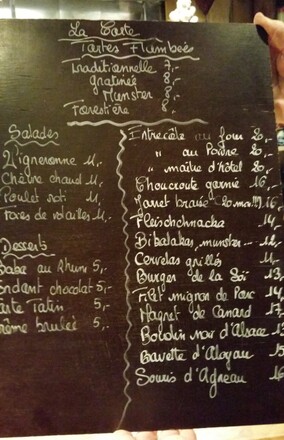 La Carte
Tartes Flambées
Traditionnelle 7,-
gratinée 8,-
Munster 8,-
Forestière 8,-
Salades
Vigneronne 11,-
Chèvre chaud 11,-
Poulet roti 11,-
Foies de volailles 11,-
Desserts
Baba au Rhum 5,-
Fondant chocolat 5,-
Tarte Tatin 5,-
Crème brulée 5,-
Entrecôte au four 20,-
" au Poivre 20,-
" maître d'hôtel 20,-
Choucroute garnie 16,-
Jarret braisé 16,-
Fleischnacka 14,-
Bibalakas, munster 12,-
Cervelas grillés 11,-
Burger de la 13,-
Filet mignon de Porc 14,-
Magret de Canard 17,-
Boudin noir d'Alsace 13
Bavette d'Aloyau 15
Souris d'Agneau 16